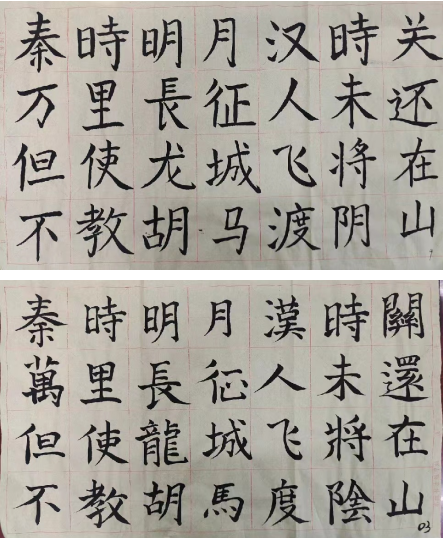 秦時明月汉時关
万里長征人未还
但使龙城飞將在
不教胡马渡阴山
秦時明月漢時關
萬里長征人未還
但使龍城飞將在
不教胡馬度陰山
03